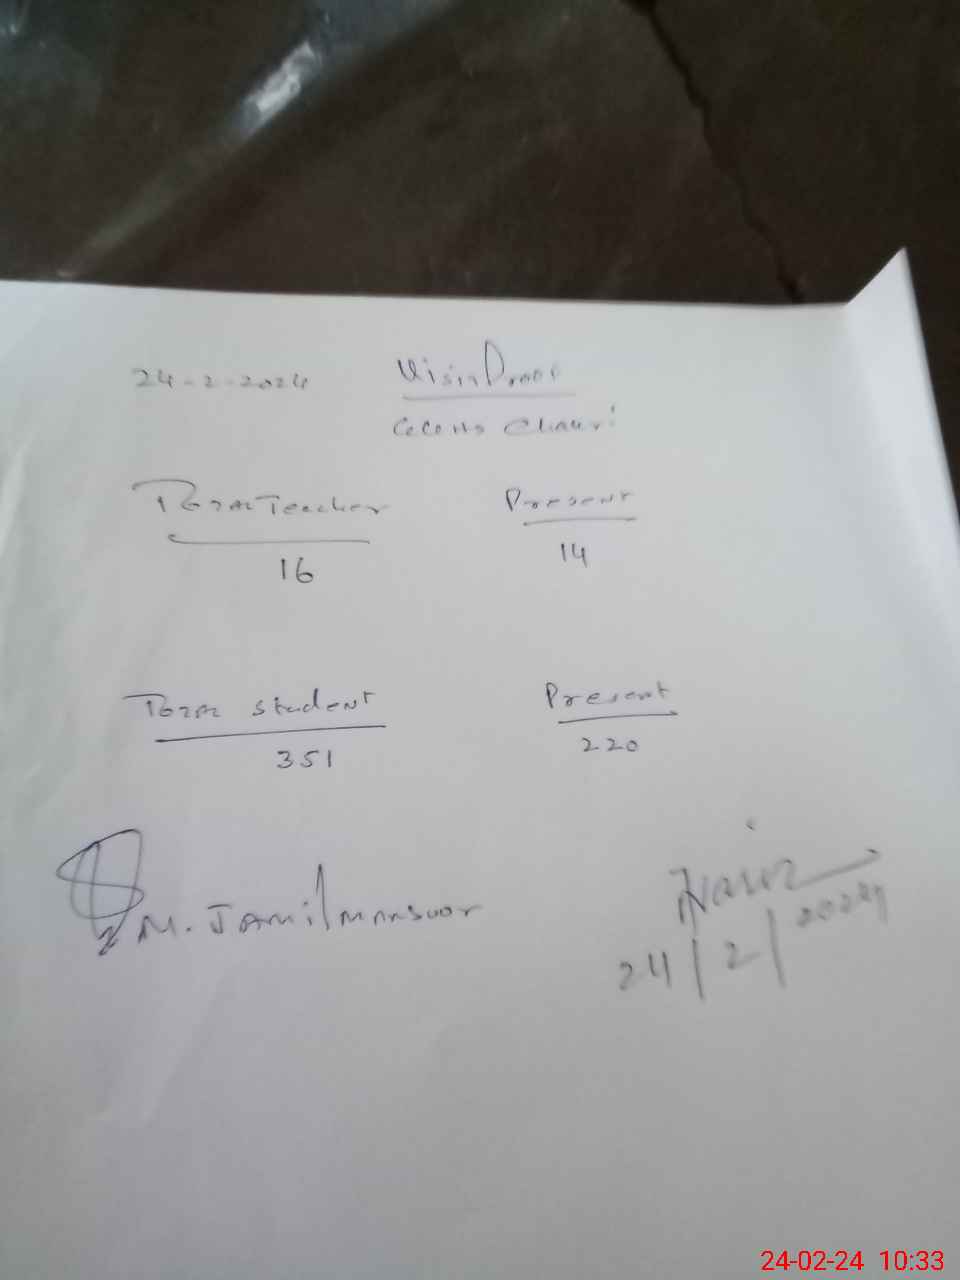 24-2-2024 Visit Proof
GGCMS Chauri
Total Teacher Present
16 14
Total Student Present
351 220
M. Jamil Mansoor
24/2/2024
24-02-24 10:33